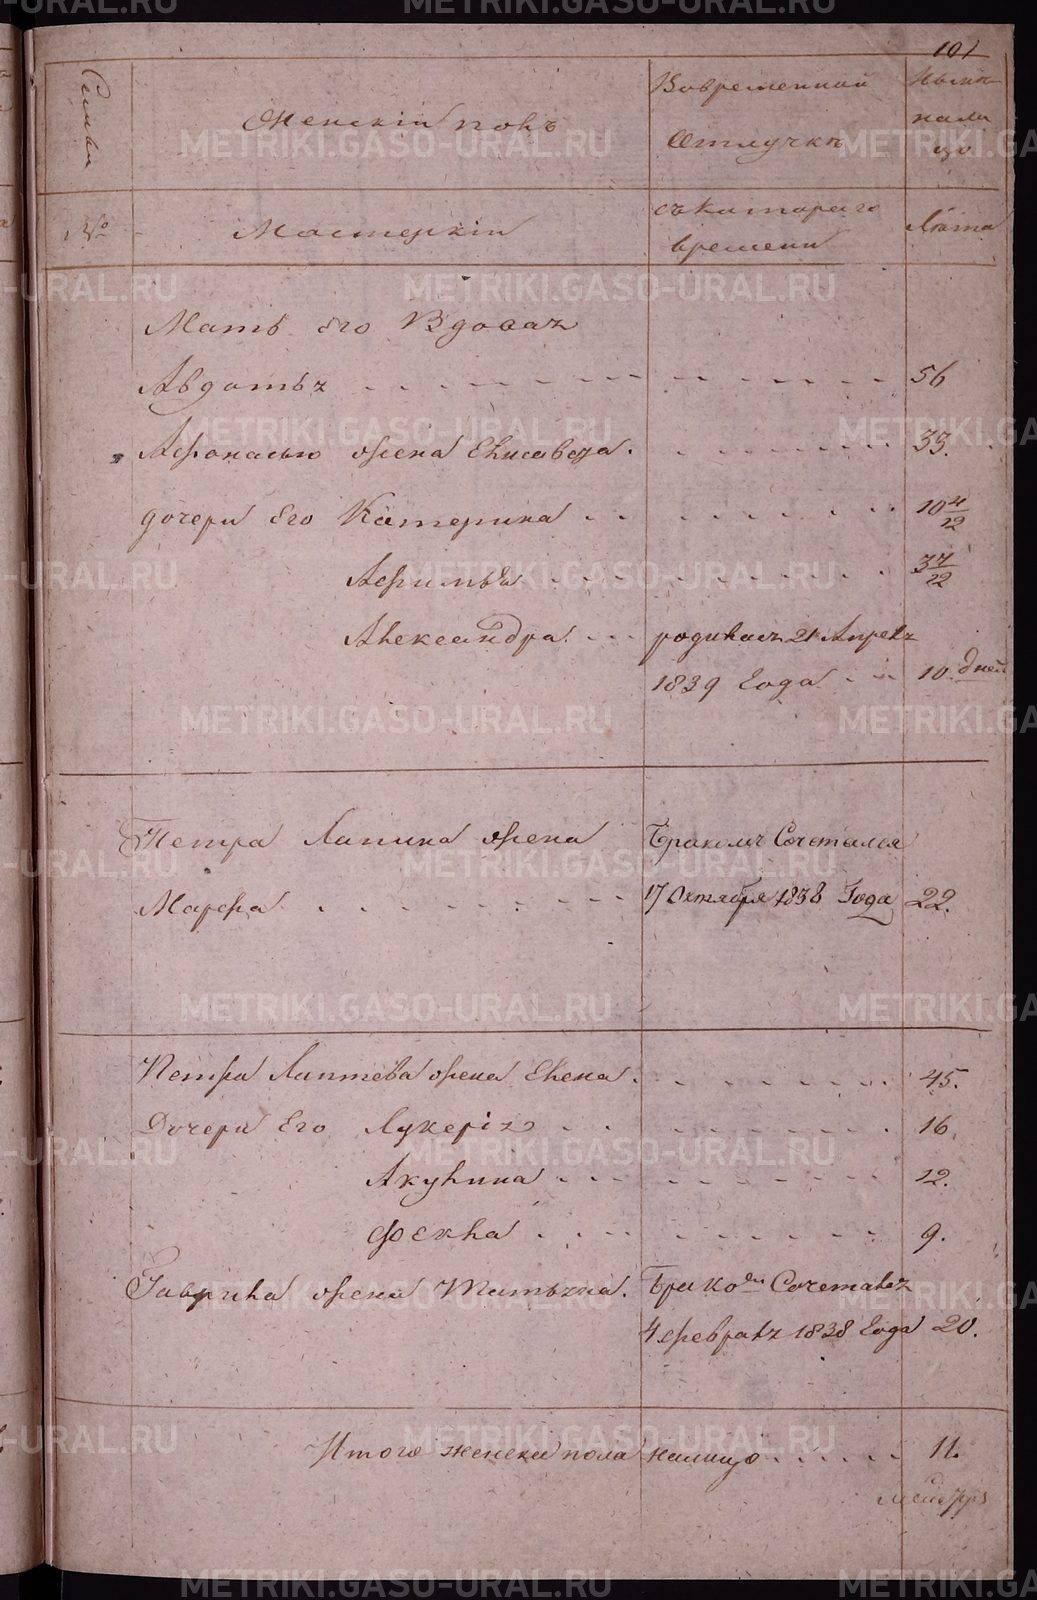 101
Семьи
Женскій полъ
Вовременной
Отлучкѣ
Нынѣ
нали
цо
№
Мастерскіи
съ Катораго
времени
Лѣта
Мать его Вдовая
Авдотья 56
Афонасью жена Елисавета. 33.
дочери Его Катерина 10 4/12
Афимья 3 7/12
Александра родилась 21 Апреля
1839 Года 10. дней
Петра Лапина жена Бракомъ Сочетался
Марфа 17 Октября 1838 Года 22.
Петра Лаптева жена Елена. 45.
Дочери Его Лукерія 16.
Акулина 12.
Фекла 9.
Гаврила жена Татьяна. Брако Сочетался
4 февраля 1838 Года 20.
Итого женска пола налицо 11.
METRIKI.GASO-URAL.RU